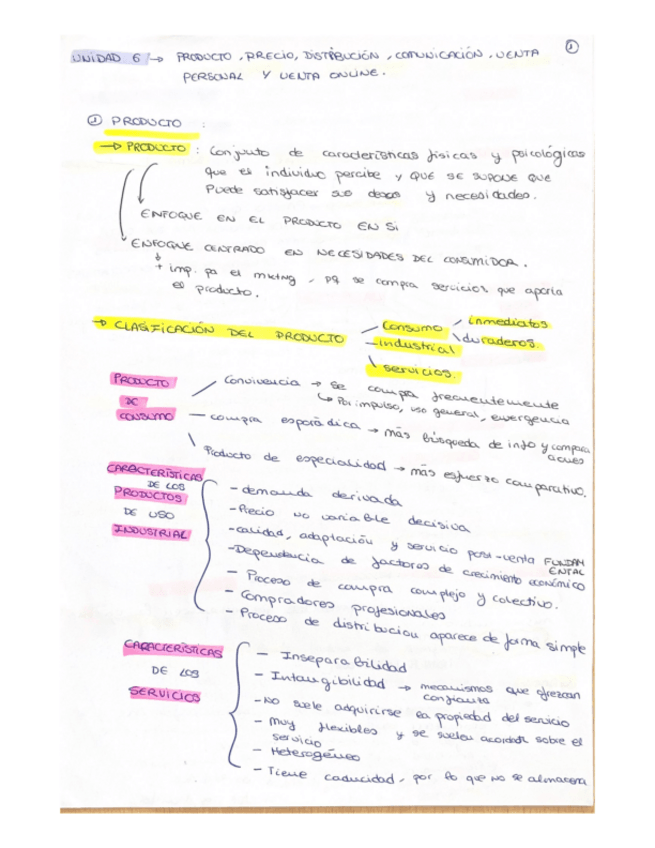 1
UNIDAD 6 → PRODUCTO, PRECIO, DISTRIBUCIÓN, COMUNICACIÓN, VENTA
PERSONAL Y VENTA ONLINE.
① PRODUCTO :
→ PRODUCTO : Conjunto de características físicas y psicológicas
que el individuo percibe y QUE SE SUPONE QUE
Puede satisfacer sus deseos y necesidades.
ENFOQUE EN EL PRODUCTO EN SI
ENFOQUE CENTRADO EN NECESIDADES DEL CONSUMIDOR.
+ imp. pa el mktng, pq se compra servicios que aporta
el producto.
→ CLASIFICACIÓN DEL PRODUCTO
consumo
inmediatos
duraderos.
industrial
servicios.
PRODUCTO
DE
CONSUMO
Convivencia → se compra frecuentemente
↳ Por impulso, uso general, emergencia
compra esporádica → más búsqueda de info y compara
Producto de especialidad → más esfuerzo comparativo.
CARACTERÍSTICAS
DE LOS
PRODUCTOS
DE USO
INDUSTRIAL
- demanda derivada
- Precio no variable decisiva
- calidad, adaptación y servicio post-venta FUNDAM
ENTAL
- Dependencia de factores de crecimiento económico
- Proceso de compra complejo y colectivo.
- Compradores profesionales
- Proceso de distribución aparece de forma simple
CARACTERÍSTICAS
DE LOS
SERVICIOS
- Inseparabilidad
- Intangibilidad → mecanismos que ofrezcan
confianza
- No suele adquirirse la propiedad del servicio
- Muy flexibles y se suelen acordar sobre el
servicio
- Heterogéneo
- Tiene caducidad, por lo que no se almacena